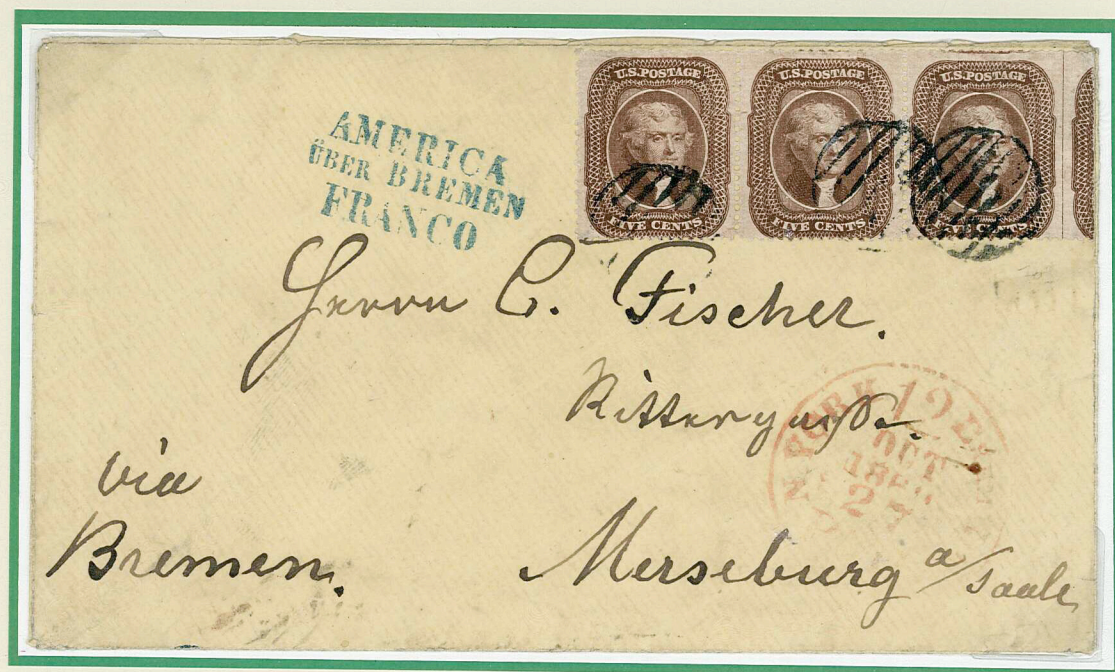 U.S.POSTAGE U.S.POSTAGE U.S.POSTAGE
FIVE CENTS FIVE CENTS
AMERICA
ÜBER BREMEN
FRANCO
Herrn C. Fischer.
Rittergasse.
N. YORK 12
OCT
via
Bremen.
Merseburg a/Saale